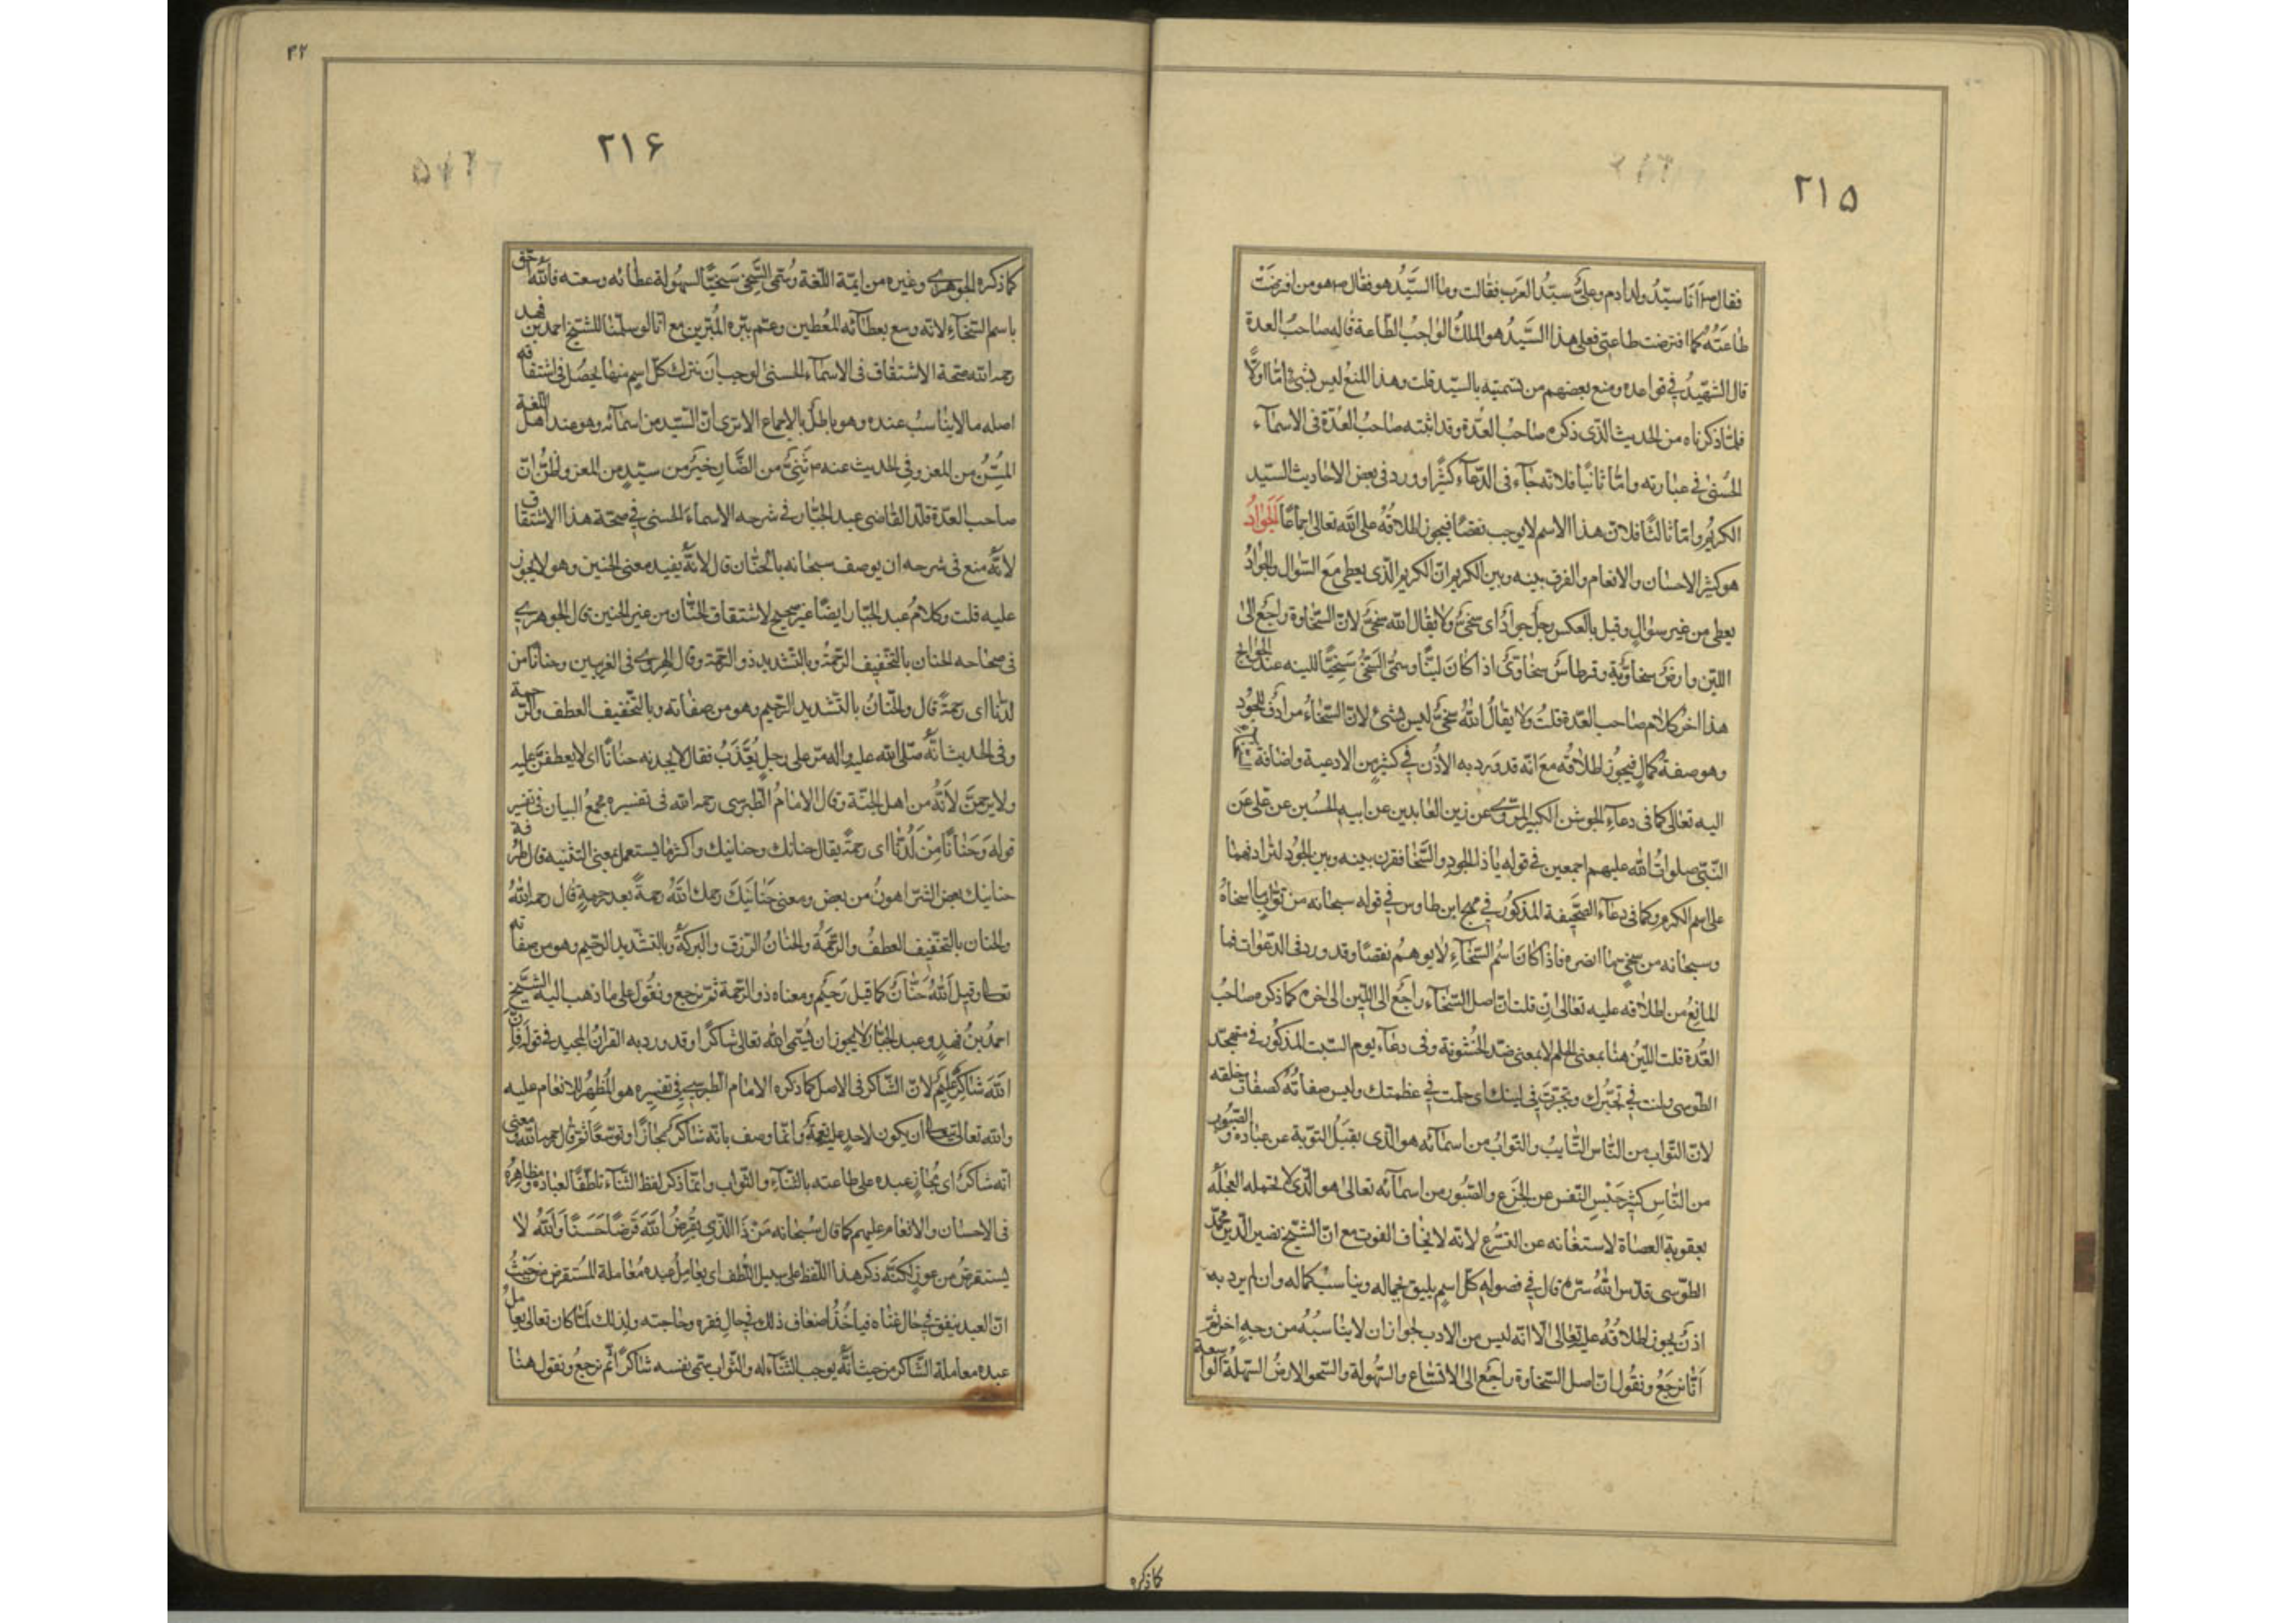 ٢١۵
فقال ص انا سيّدُ ولد ادم وعلىٌّ سيّد العرب فقالت وما السيّدُ هو فقال ص هو من افترضت
طاعَتُهُ كما افترضت طاعتى فعلى هذا السيّدُ هو الملكُ الواجبُ الطّاعة قاله صاحبُ العدة
قال الشهيدُ فى قواعده ومنع بعضهم من تسميته بالسيّد قلت وهذا المنع ليس بشئ امّا اولًا
فلمّا ذكرناه من الحديث الذى ذكره صاحب العدّة وقد اثبته صاحبُ العدّة فى الاسمآء
الحُسنىٰ فى عبارته وامّا ثانيًا فلانّه جآء فى الدّعآء كثيرًا وورد فى بعض الاحاديث السيّد
الكريمُ وامّا ثالثًا فلانّ هذا الاسم لا يوجب نقصًا فيجوز اطلاقُهُ على الله تعالى اجماعًا الجَوٰادُ
هو كثير الاحسان والانعام والفرق بينه وبين الكريم انّ الكريم الّذى يعطى مع السّؤال والجوٰادُ
يعطى من غير سؤالٍ وقيل بالعكس رجلٌ جوادٌ اى سخىٌّ ولا يقال الله سخىٌّ لانّ السّخاوة راجعٌ الى
اللين وارضٌ سخاويّةٌ وقرطاسٌ سخاوىٌّ اذا كان ليّنًا وسمّى السّخىُّ سَخيًّا للينه عند الحوائج
هذا اخر كلام صاحب العدّة قلتُ ولا يقالُ اللهُ سخىٌّ ليس بشئ لانّ السّخاءُ مرادف للجُود
وهو صفةُ كمالٍ فيجوز اطلاقُه مع انّه قد ورد به الاذن فى كثيرٍ من الادعية واضافة
اليه تعالى كما فى دعآءِ الجوشن الكبير المروى عن زين العابدين عن ابيه الحسين عن على عن
النّبىّ صلوات الله عليهم اجمعين فى قوله يا ذا الجود والسّخا فقرن بينه وبين الجُود لترادفهما
على اسم الكرم وكما فى دعآء الصّحيفة المذكور فى مهج ابن طاوس فى قوله سبحانه من توّابٍ ما اسخاهُ
وسبحانه من سخىٍّ ما انصره فاذا كان اسمُ السّخآءِ لا يوهم نقصًا وقد ورد فى الدّعوات فما
المانعُ من اطلاقه عليه تعالى ان قلت انّ اصل السّخآء راجعٌ الى اللّين الى اخره كما ذكره صاحبُ
العُدة قلت اللّينُ هنا بمعنى الحلم لا بمعنى ضدّ الخُشونة وفى دعآء يوم السّبت المذكور فى متهجّد
الطّوسى ولنت فى تجبّرك وتجبّرت فى لينك اى حلمت فى عظمتك وليس صفاتُهُ كصفات خلقه
لانّ التوّاب من النّاس التّايبُ والتوّابُ من اسمآئه هو الّذى يقبَلُ التّوبة عن عباده والصّبُور
من النّاسِ كثير حَبْسِ النّفس عن الجزع والصّبُور من اسمآئه تعالى هو الّذى لا تحمله العَجَلَةُ
بعقوبة العصاة لاستغنائه عن التسرّع لانّه لا يخاف الفوت مع انّ الشّيخ نصير الّدين محمّد
الطّوسى قدّس اللهُ سرّه قال فى فصوله كلّ اسمٍ يليق بجماله ويناسبُ كماله وان لم يرد به
اذنٌ يجوز اطلاقُهُ عليه تعالى الّا انّه ليس من الادب لجواز ان لا يناسبُهُ من وجهٍ اخر ثمّ
انّا نرجعُ ونقُول انّ اصل السّخاوة راجعٌ الى الاتّساع والسّهولة والسّخو الارضُ السّهلةُ الواسعة
كما ذكره
٣٢
٢١۶
كما ذكره الجوهرى وغيره من ائمّة اللّغة وسُمّى السّخى سَخيًّا لسهُولة عطائه وسعته فاللهُ احقّ
باسم السّخآءِ لانّه وسع بعطآئه المُعطين وعمّ ببرّه المُبرّين مع انّا لو سلّمنا للشّيخ احمد بن فهد
رحمه الله صحّة الاشتقاق فى الاسمآء الحُسنىٰ لوجب أن نترك كلّ اسمٍ منها يحصُل فى اشتقاقه
اصله ما لا يناسبُ عنده وهو باطلٌ بالاجماع الا ترى انّ السّيد من اسمآئه وهو عند اهل اللّغة
المُسِنُّ من المعز وفى الحديث عنه ص ثَنِىٌّ من الضّان خيرٌ من سيّدٍ من المعز واظنُّ انّ
صاحب العدّة قلّد القاضى عبد الجبّار فى شرحه الاسماءَ الحسنى فى صحّة هذا الاشتقاق
لانّهُ منع فى شرحه ان يوصف سبحانه بالحنّان قال لانّهُ يفيد معنى الحنين وهو لا يجوز
عليه قلت وكلامُ عبد الجبّار ايضًا غير صحيح لاشتقاق الحنّان من غير الحنين قال الجوهرى
فى صحاحه الحنان بالتّخفيف الرّحمةُ وبالتّشديد ذو الرّحمة وقال الهروى فى الغريبين وحنانًا من
لدنّا اى رحمةً قال والحنّانُ بالتّشديد الرّحيم وهو من صفاته وبالتّخفيف العطف والرّحمة
وفى الحديث انّهُ صلّى الله عليه واله مرّ على رجلٍ يُعَذَّبُ فقال لاتّخذنه حنانًا اى لا يعطفنّ عليه
ولا يرحمنّ لانّهُ من اهل الجنّة وقال الامامُ الطّبرسى رحمه الله فى تفسيره مجمعُ البيان فى تفسير
قوله وَحَنٰانًا مِنْ لَدُنّٰا اى رحمةً يقال حنانك وحنانيك واكثر ما يستعمل بمعنى التثنيه قال طرفة
حنانيك بعض الشرّ اهونُ من بعض ومعنى حَنٰانَيْكَ رحمك اللهُ رحمةً بعد رحمةٍ قال رحمه اللهُ
والحنان بالتّخفيف العطفُ والرّحمَةُ والحنانُ الرّزق والبركةُ وبالتّشديد الرّحيم وهو من صفاته
تعالى وقيل اللهُ حنّانٌ كما قيل رَحيمٌ ومعناه ذو الرّحمة ثمّ نرجع ونقُول على ما ذهب اليه الشّيخ
احمدُ بنُ فهدٍ وعبد الجبّار لا يجوز ان يُسمّى الله تعالى شاكرًا وقد ورد به القرانُ المجيد فى قوله فَاِنّ
اللّهَ شٰاكِرٌ عَليمٌ لانّ الشّاكر فى الاصل كما ذكره الامام الطّبرسى فى تفسيره هو المُظهرُ للانعام عليه
والله تعالى يتعالى ان يكون لاحدٍ عليه نعمةٌ وانّما وصف بانّه شاكرٌ مجازًا وتوسّعًا ثمّ قال رحمه الله ومعنى
انّه شاكرٌ اى مُجازٍ عبده على طاعته بالثّنآءِ والثّواب وانّما ذكر لفظ الثّنآء تلطّفًا لعباده ومظاهرةً
فى الاحسان والانعام عليهم كما قال سُبحانه مَنْ ذَا الَّذى يُقْرِضُ اللّهَ قَرْضًا حَسَنًا وَاللّهُ لا
يستقرضُ من عوزٍ لكنّهُ ذكر هذا اللّفظ على سبيل اللّطف اى يعاملُ عبده مُعاملة المُستقرض من حيْثُ
انّ العبد ينفق فى حال غناه فياخُذُ اضعاف ذلك فى حال فقره وحاجته ولذلك لمّا كان تعالى يعامل
عبده معاملة الشّاكر من حيث انّهُ يوجب الثّنآءَ له والثّواب سمّى نفسه شاكرًا ثم نرجعُ ونقول هنا